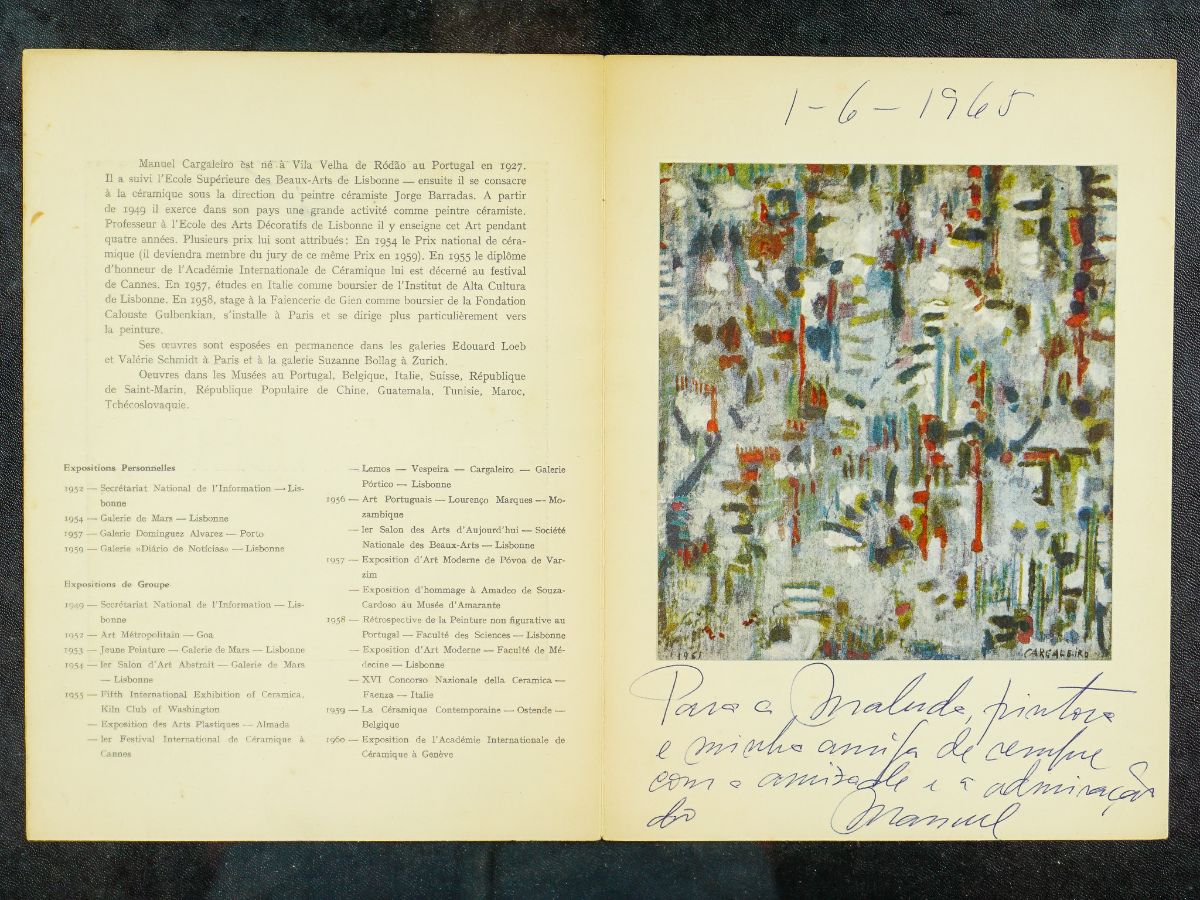 Manuel Cargaleiro est né à Vila Velha de Ródão au Portugal en 1927.
Il a suivi l'Ecole Supérieure des Beaux-Arts de Lisbonne — ensuite il se consacre
à la céramique sous la direction du peintre céramiste Jorge Barradas. A partir
de 1949 il exerce dans son pays une grande activité comme peintre céramiste.
Professeur à l'Ecole des Arts Décoratifs de Lisbonne il y enseigne cet Art pendant
quatre années. Plusieurs prix lui sont attribués: En 1954 le Prix national de céra-
mique (il deviendra membre du jury de ce même Prix en 1959). En 1955 le diplôme
d'honneur de l'Académie Internationale de Céramique lui est décerné au festival
de Cannes. En 1957, études en Italie comme boursier de l'Institut de Alta Cultura
de Lisbonne. En 1958, stage à la Faiencerie de Gien comme boursier de la Fondation
Calouste Gulbenkian, s'installe à Paris et se dirige plus particulièrement vers
la peinture.
Ses œuvres sont esposées en permanence dans les galeries Edouard Loeb
et Valérie Schmidt à Paris et à la galerie Suzanne Bollag à Zurich.
Oeuvres dans les Musées au Portugal, Belgique, Italie, Suisse, République
de Saint-Marin, République Populaire de Chine, Guatemala, Tunisie, Maroc,
Tchécoslovaquie.
Expositions Personnelles
1952 — Secrétariat National de l'Information — Lis-
bonne
1954 — Galerie de Mars — Lisbonne
1957 — Galerie Dominguez Alvarez — Porto
1959 — Galerie «Diário de Notícias» — Lisbonne
Expositions de Groupe
1949 — Secrétariat National de l'Information — Lis-
bonne
1952 — Art Métropolitain — Goa
1953 — Jeune Peinture — Galerie de Mars — Lisbonne
1954 — Ier Salon d'Art Abstrait — Galerie de Mars
— Lisbonne
1955 — Fifth International Exhibition of Ceramica,
Kiln Club of Washington
— Exposition des Arts Plastiques — Almada
— Ier Festival International de Céramique à
Cannes
— Lemos — Vespeira — Cargaleiro — Galerie
Pórtico — Lisbonne
1956 — Art Portuguais — Lourenço Marques — Mo-
zambique
— Ier Salon des Arts d'Aujourd'hui — Société
Nationale des Beaux-Arts — Lisbonne
1957 — Exposition d'Art Moderne de Póvoa de Var-
zim
— Exposition d'hommage à Amadeo de Souza-
Cardoso au Musée d'Amarante
1958 — Rétrospective de la Peinture non figurative au
Portugal — Faculté des Sciences — Lisbonne
— Exposition d'Art Moderne — Faculté de Mé-
decine — Lisbonne
— XVI Concorso Nazionale della Ceramica —
Faenza — Italie
1959 — La Céramique Contemporaine — Ostende —
Belgique
1960 — Exposition de l'Académie Internationale de
Céramique à Genève
1-6-1965
1961 CARGALEIRO
Para a Maluda, pintora
e minha amiga de sempre
com a amizade e a admiração
do Manuel